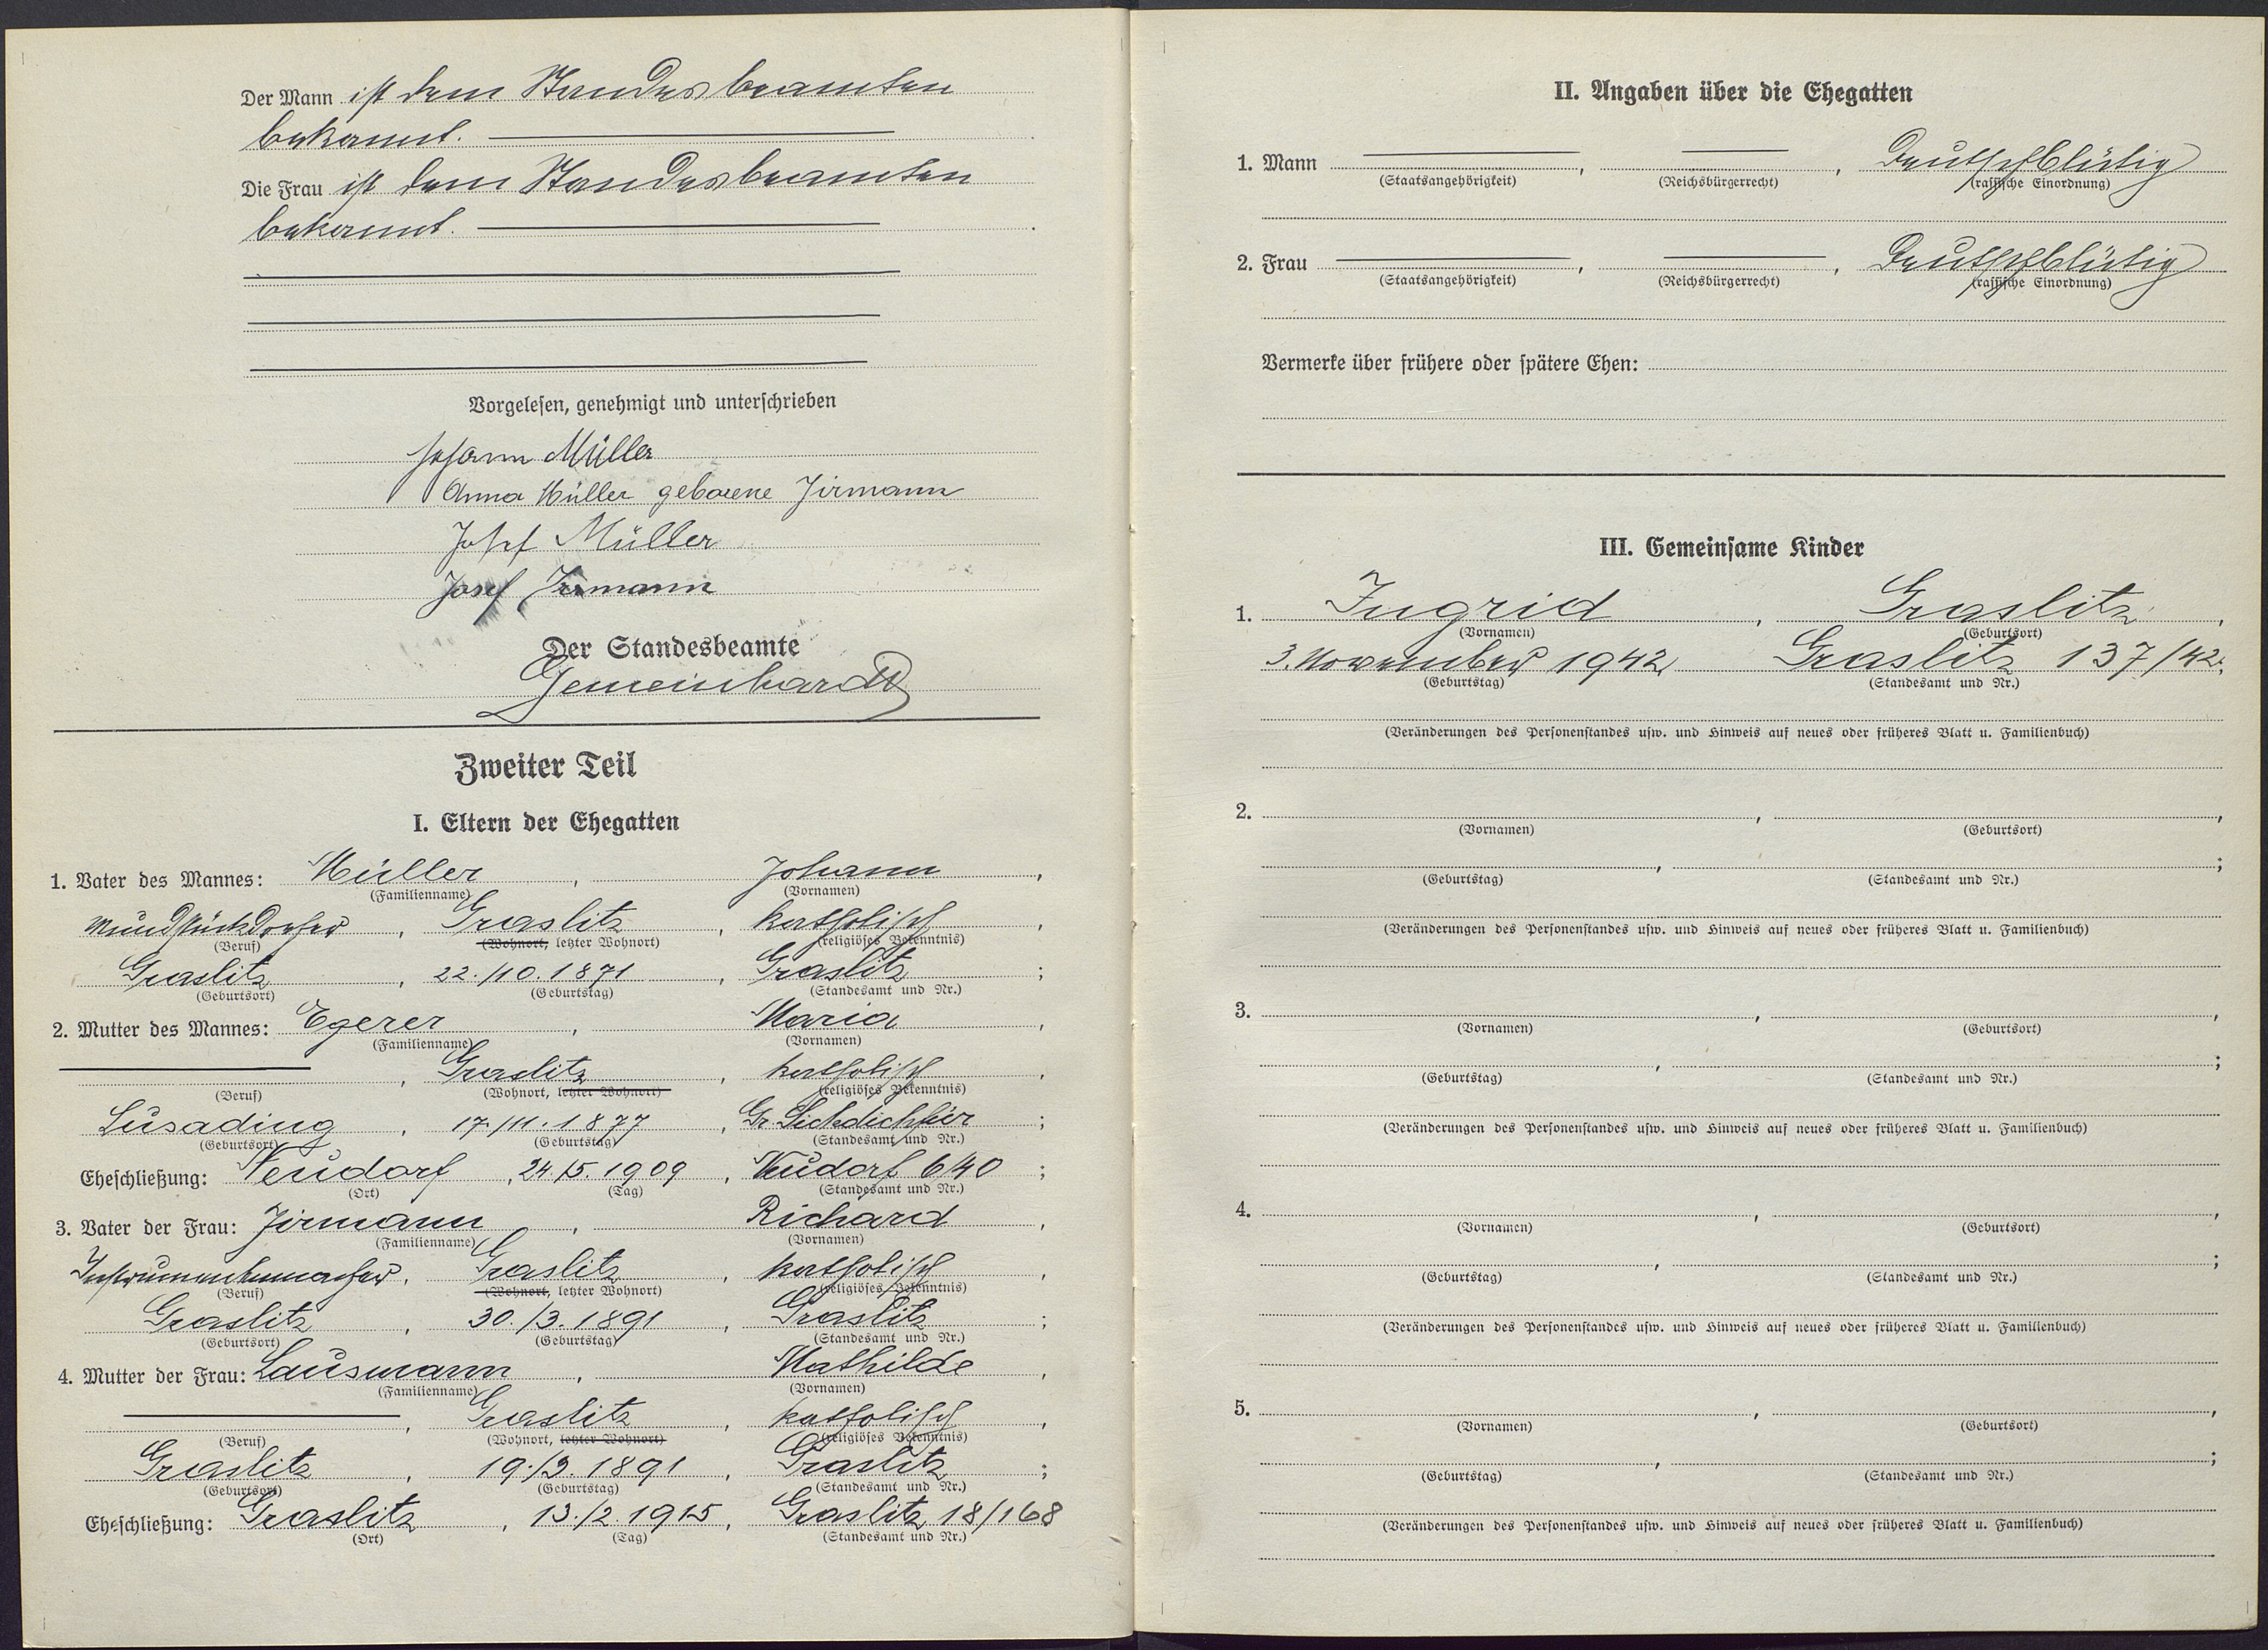 Der Mann ist dem Standesbeamten
bekannt.
Die Frau ist dem Standesbeamten
bekannt.
Vorgelesen, genehmigt und unterschrieben
Johann Müller
Anna Müller geborene Jirmann
Josef Müller
Josef Jirmann
Der Standesbeamte
Gemeinhardt
Zweiter Teil
I. Eltern der Ehegatten
1. Vater des Mannes: Müller, Johann,
(Familienname) (Vornamen)
Mundstückdreher, Graslitz, katholisch,
(Beruf) (Wohnort, letzter Wohnort) (religiöses Bekenntnis)
Graslitz, 22./10.1871, Graslitz;
(Geburtsort) (Geburtstag) (Standesamt und Nr.)
2. Mutter des Mannes: Egerer, Maria,
(Familienname) (Vornamen)
, Graslitz, katholisch,
(Beruf) (Wohnort, letzter Wohnort) (religiöses Bekenntnis)
Lusading, 17./11.1877, Gr. Sichdichfür;
(Geburtsort) (Geburtstag) (Standesamt und Nr.)
Eheschließung: Neudorf, 24./5.1909, Neudorf 6/40;
(Ort) (Tag) (Standesamt und Nr.)
3. Vater der Frau: Jirmann, Richard,
(Familienname) (Vornamen)
Instrumentenmacher, Graslitz, katholisch,
(Beruf) (Wohnort, letzter Wohnort) (religiöses Bekenntnis)
Graslitz, 30./3.1891, Graslitz;
(Geburtsort) (Geburtstag) (Standesamt und Nr.)
4. Mutter der Frau: Lausmann, Mathilde,
(Familienname) (Vornamen)
, Graslitz, katholisch,
(Beruf) (Wohnort, letzter Wohnort) (religiöses Bekenntnis)
Graslitz, 19./3.1891, Graslitz;
(Geburtsort) (Geburtstag) (Standesamt und Nr.)
Eheschließung: Graslitz, 13./2.1915, Graslitz 18/168
(Ort) (Tag) (Standesamt und Nr.)
II. Angaben über die Ehegatten
1. Mann , , Deutschblütig
(Staatsangehörigkeit) (Reichsbürgerrecht) (rassische Einordnung)
2. Frau , , Deutschblütig
(Staatsangehörigkeit) (Reichsbürgerrecht) (rassische Einordnung)
Vermerke über frühere oder spätere Ehen:
III. Gemeinsame Kinder
1. Ingrid, Graslitz,
(Vornamen) (Geburtsort)
3. November 1942 Graslitz 137/42;
(Geburtstag) (Standesamt und Nr.)
(Veränderungen des Personenstandes usw. und Hinweis auf neues oder früheres Blatt u. Familienbuch)
2. , ,
(Vornamen) (Geburtsort)
, ;
(Geburtstag) (Standesamt und Nr.)
(Veränderungen des Personenstandes usw. und Hinweis auf neues oder früheres Blatt u. Familienbuch)
3. , ,
(Vornamen) (Geburtsort)
, ;
(Geburtstag) (Standesamt und Nr.)
(Veränderungen des Personenstandes usw. und Hinweis auf neues oder früheres Blatt u. Familienbuch)
4. , ,
(Vornamen) (Geburtsort)
, ;
(Geburtstag) (Standesamt und Nr.)
(Veränderungen des Personenstandes usw. und Hinweis auf neues oder früheres Blatt u. Familienbuch)
5. , ,
(Vornamen) (Geburtsort)
, ;
(Geburtstag) (Standesamt und Nr.)
(Veränderungen des Personenstandes usw. und Hinweis auf neues oder früheres Blatt u. Familienbuch)